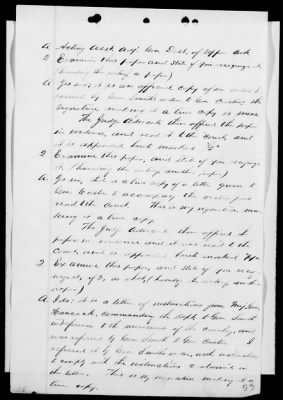 A. Acting Asst. Adj. Gen. Dist. of Upper Ark
Q Examine this paper and state if you recognize
it, (handing the witness a paper)
A. Yes sir, it is an official copy of an order
issued by Gen. Smith order to Gen. Custer, the
signature making it a true copy is mine
The Judge Advocate then offered the paper
in evidence, and read it to the Court, and
it is appended hereto marked "G"
Q Examine this paper, and state if you recognize
it, (handing the witness another paper)
A. Yes sir, this is a true copy of a letter given to
Gen Custer to accompany the order just
read to the Court. This is my signature ma-
king it a true copy
The Judge Advocate then offered the
paper in evidence and it was read to the
Court, and is appended hereto marked "H"
Q Examine this paper, and state if you recog-
nize it, & if so, what (handing the witness anoth-
er paper)
A I do; it is a letter of instructions from Maj. Gen.
Hancock, commanding the Dept. to Gen. Smith
in reference to the movement of the cavalry, and
was referred by Gen Smith to Gen Custer. I
referred it by Gen Smith's order, with instructions
to comply with the instructions contained in
the letter. This is my signature making it a
true copy.